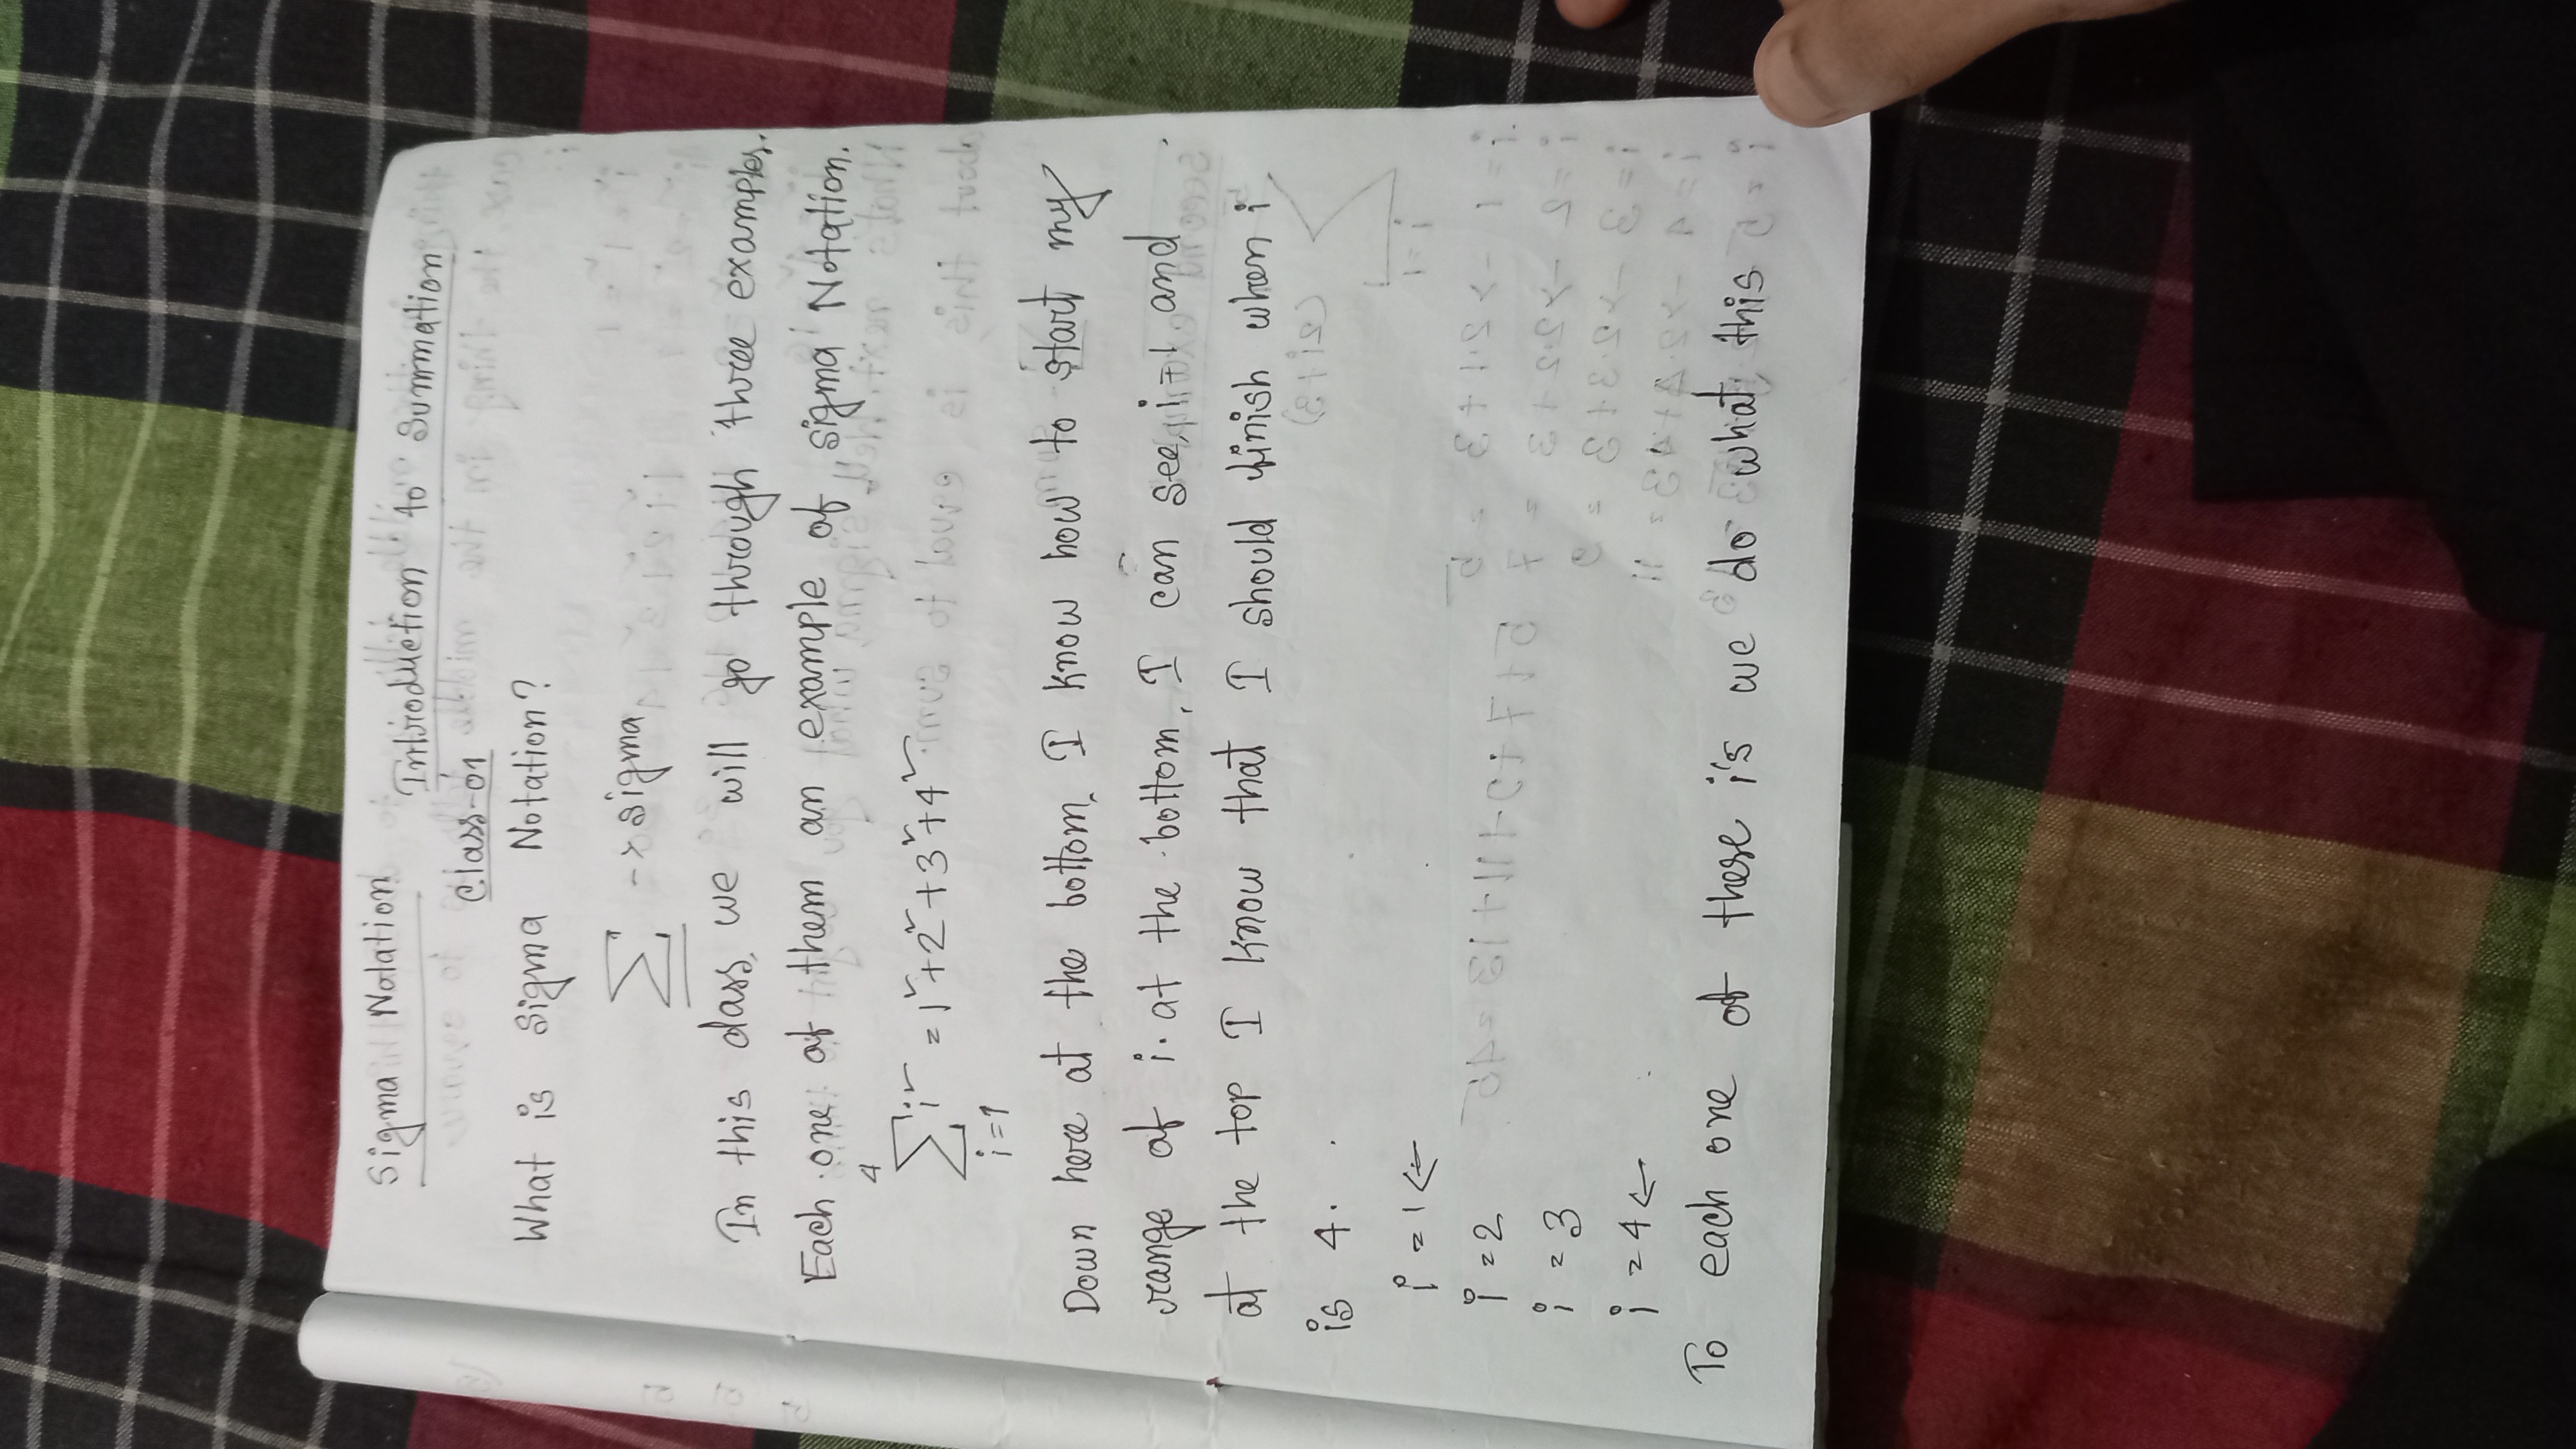 Sigma Notation Introduction to Summation
Class-01
What is Sigma Notation?
∑ -> sigma
In this class, we will go through three examples.
Each one of them an example of sigma Notation.
4
∑ i² = 1² + 2² + 3² + 4²
i=1
Down here at the bottom, I know how to start my
range of i. at the bottom, I can see, i=1 and
at the top I know that I should finish when i
is 4.
i = 1 <-
i = 2
i = 3
i = 4 <-
To each one of these i's we do what this